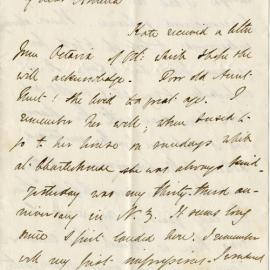 Kate received a letter
from Octavia of Oct. which she
will acknowledge. Poor old Aunt
! She lived to a great age. I
remember her well, when I used to
go to her house on Sundays while
at Charterhouse she was always kind.
Yesterday was my thirty third an-
niversary in N.Z. It seems long
since I first landed here. I remember
well my first impressions. I